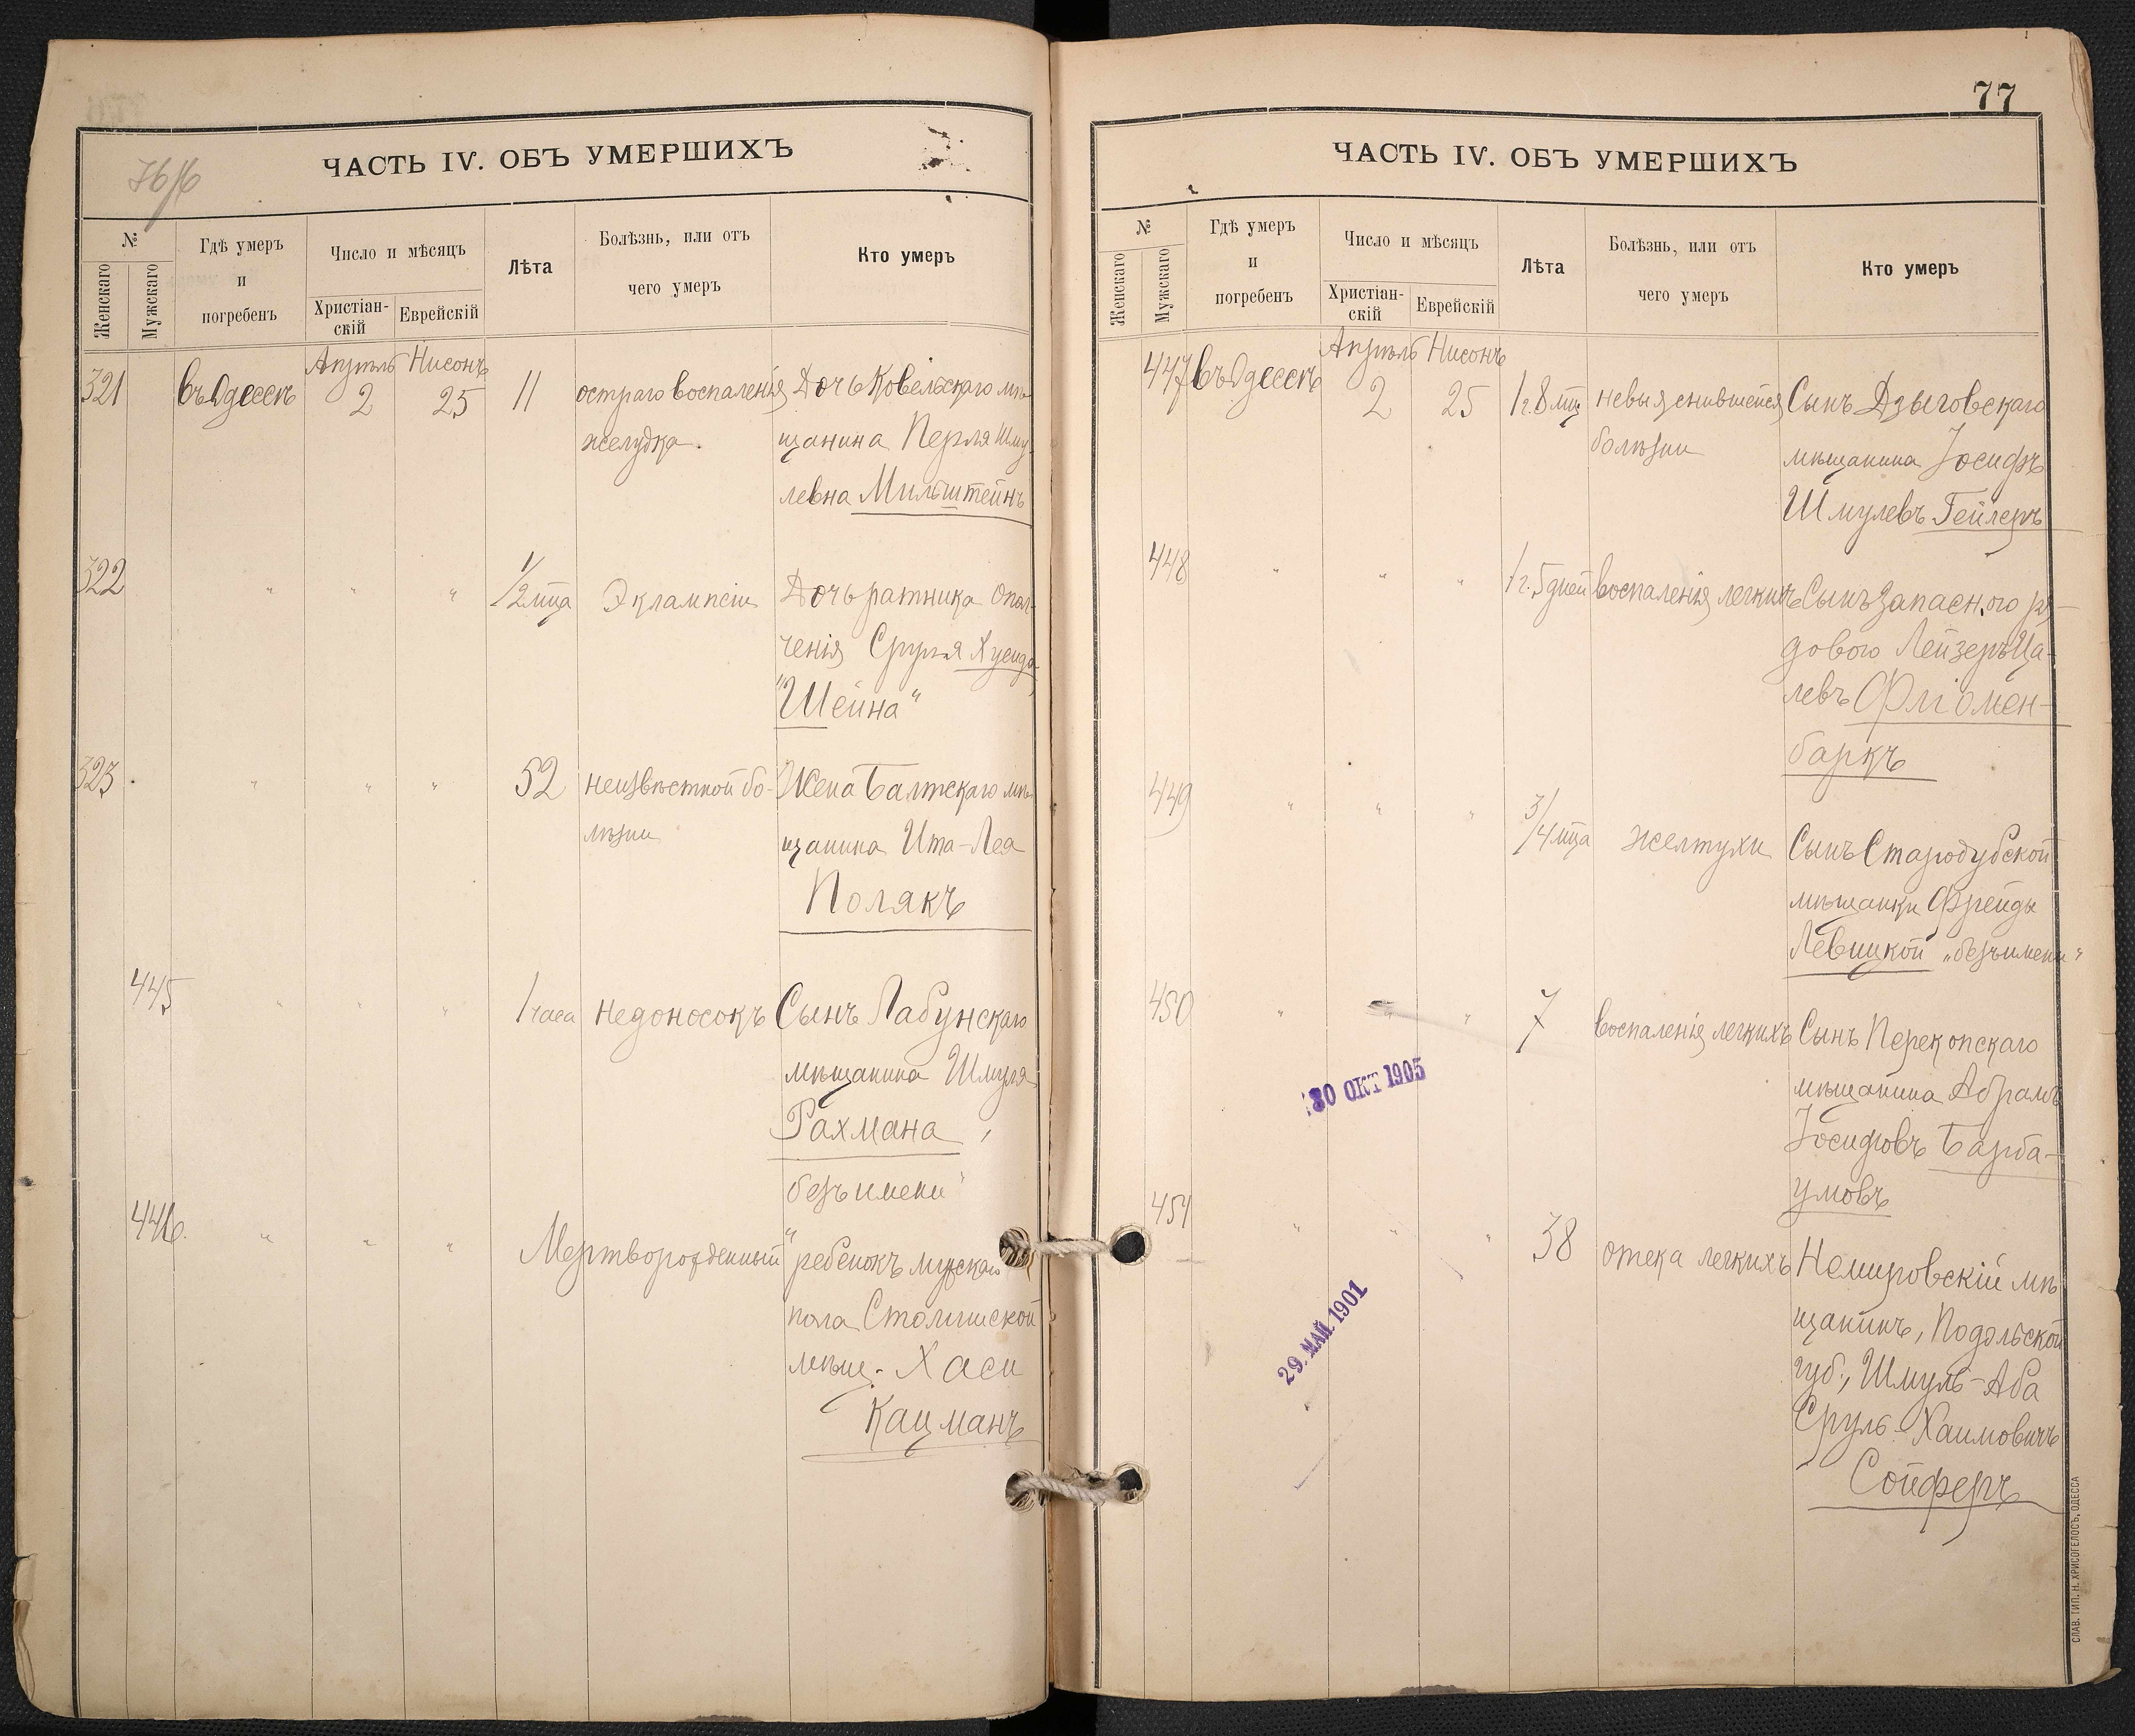 76/6
ЧАСТЬ IV. ОБЪ УМЕРШИХЪ
№
Женскаго
Мужскаго
Гдѣ умеръ
и
погребенъ
Число и мѣсяцъ
Христіан-
скій
Еврейскій
Лѣта
Болѣзнь, или отъ
чего умеръ
Кто умеръ
Апрѣль Нисонъ
321 въ Одессѣ 2 25 11 остраго воспаленія Дочь Ковельскаго мѣ-
желудка. щанина Перля Шму-
левна Мильштейнъ
322 " " " 1/2 мца Эклампсіи Дочь ратника опол-
ченія Сруля Хусида
"Шейна"
323 " " " 52 неизвѣстной бо- Жена Балтскаго мѣ-
лѣзни щанина Ита-Лея
Полякъ
445 " " " 1 часа недоносокъ Сынъ Лабунскаго
мѣщанина Шмуля
Рахмана "
безъ имени"
446. " " " Мертворожденный "ребенокъ мужскаго
пола Столинской
мѣщ. Хаси
Кацманъ
77
ЧАСТЬ IV. ОБЪ УМЕРШИХЪ
№
Женскаго
Мужскаго
Гдѣ умеръ
и
погребенъ
Число и мѣсяцъ
Христіан-
скій
Еврейскій
Лѣта
Болѣзнь, или отъ
чего умеръ
Кто умеръ
Апрѣль Нисонъ
447 въ Одессѣ 2 25 1 г. 8 мц невыяснившейся Сынъ Дзыговскаго
болѣзни мѣщанина Іосифъ
Шмулевъ Гейлеръ
448 " " " 1 г. 5 дней воспаленія легкихъ Сынъ запасного ря-
дового Лейзеръ Ца-
левъ Фліомен-
баркъ
449 " " " 3/4 мца желтухи Сынъ Стародубской
мѣщанки Фрейды
Левицкой "безъ имени"
450 " " " 7 воспаленія легкихъ Сынъ Перекопскаго
мѣщанина Абрамъ
Іосифовъ Барба-
умовъ
30 ОКТ 1905
451 " " " 38 отека легкихъ Немировскій мѣ-
щанинъ, Подольской
губ., Шмуль-Аба
Сруль-Хаимовичъ
Сойферъ
29. МАЙ 1901
СЛАВ. ТИП. Н. ХРИСОГЕЛОСЪ, ОДЕССА